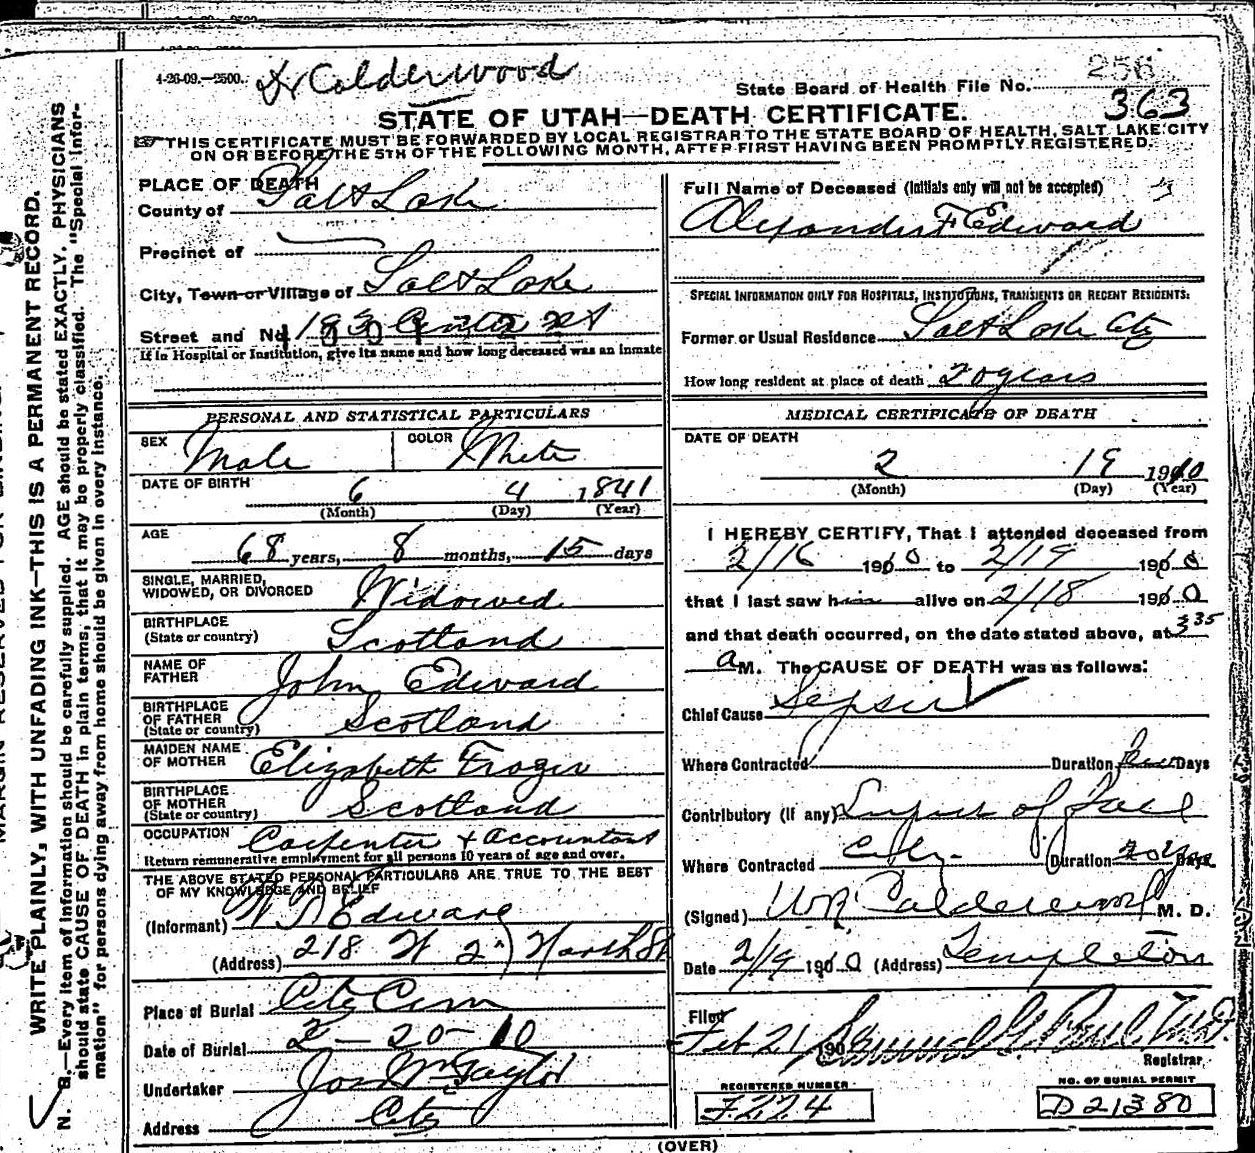 4-26-09.—2500.
Dr Calderwood
State Board of Health File No. 256
363
STATE OF UTAH—DEATH CERTIFICATE.
THIS CERTIFICATE MUST BE FORWARDED BY LOCAL REGISTRAR TO THE STATE BOARD OF HEALTH, SALT LAKE CITY
ON OR BEFORE THE 5TH OF THE FOLLOWING MONTH, AFTER FIRST HAVING BEEN PROMPTLY REGISTERED.
PLACE OF DEATH
County of Salt Lake
Precinct of
City, Town or Village of Salt Lake
Street and No. 183 Center St
If in Hospital or Institution, give its name and how long deceased was an inmate
PERSONAL AND STATISTICAL PARTICULARS
SEX Male COLOR White
DATE OF BIRTH 6 4 1841
(Month) (Day) (Year)
AGE 68 years, 8 months, 15 days
SINGLE, MARRIED,
WIDOWED, OR DIVORCED Widowed
BIRTHPLACE
(State or country) Scotland
NAME OF
FATHER John Edward
BIRTHPLACE
OF FATHER
(State or country) Scotland
MAIDEN NAME
OF MOTHER Elizabeth Frazer
BIRTHPLACE
OF MOTHER
(State or country) Scotland
OCCUPATION Carpenter + Accountant
Return remunerative employment for all persons 10 years of age and over.
THE ABOVE STATED PERSONAL PARTICULARS ARE TRUE TO THE BEST
OF MY KNOWLEDGE AND BELIEF
(Informant) Edward
(Address) 218 W 2nd North St
Place of Burial City Cem
Date of Burial 2-20-10
Undertaker Jos Wm Taylor
Address City
Full Name of Deceased (Initials only will not be accepted)
Alexander F Edward
SPECIAL INFORMATION ONLY FOR HOSPITALS, INSTITUTIONS, TRANSIENTS OR RECENT RESIDENTS:
Former or Usual Residence Salt Lake City
How long resident at place of death 20 years
MEDICAL CERTIFICATE OF DEATH
DATE OF DEATH
2 19 1910
(Month) (Day) (Year)
I HEREBY CERTIFY, That I attended deceased from
2/16 1910 to 2/19 1910
that I last saw him alive on 2/18 1910
and that death occurred, on the date stated above, at 3 35
a M. The CAUSE OF DEATH was as follows:
Chief Cause Sepsis
Where Contracted Duration few Days
Contributory (If any) Lupus of Face
Where Contracted City. Duration 20 yrs Days
(Signed) W R Calderwood M. D.
Date 2/19 1910 (Address) Templeton
Filed Feb 21 190 Samuel G. Paul M.D.
Registrar
REGISTERED NUMBER
F.224
NO. OF BURIAL PERMIT
D 21380
(OVER)
WRITE PLAINLY, WITH UNFADING INK—THIS IS A PERMANENT RECORD.
N. B.—Every item of information should be carefully supplied. AGE should be stated EXACTLY. PHYSICIANS
should state CAUSE OF DEATH in plain terms, that it may be properly classified. The "Special Infor-
mation" for persons dying away from home should be given in every instance.